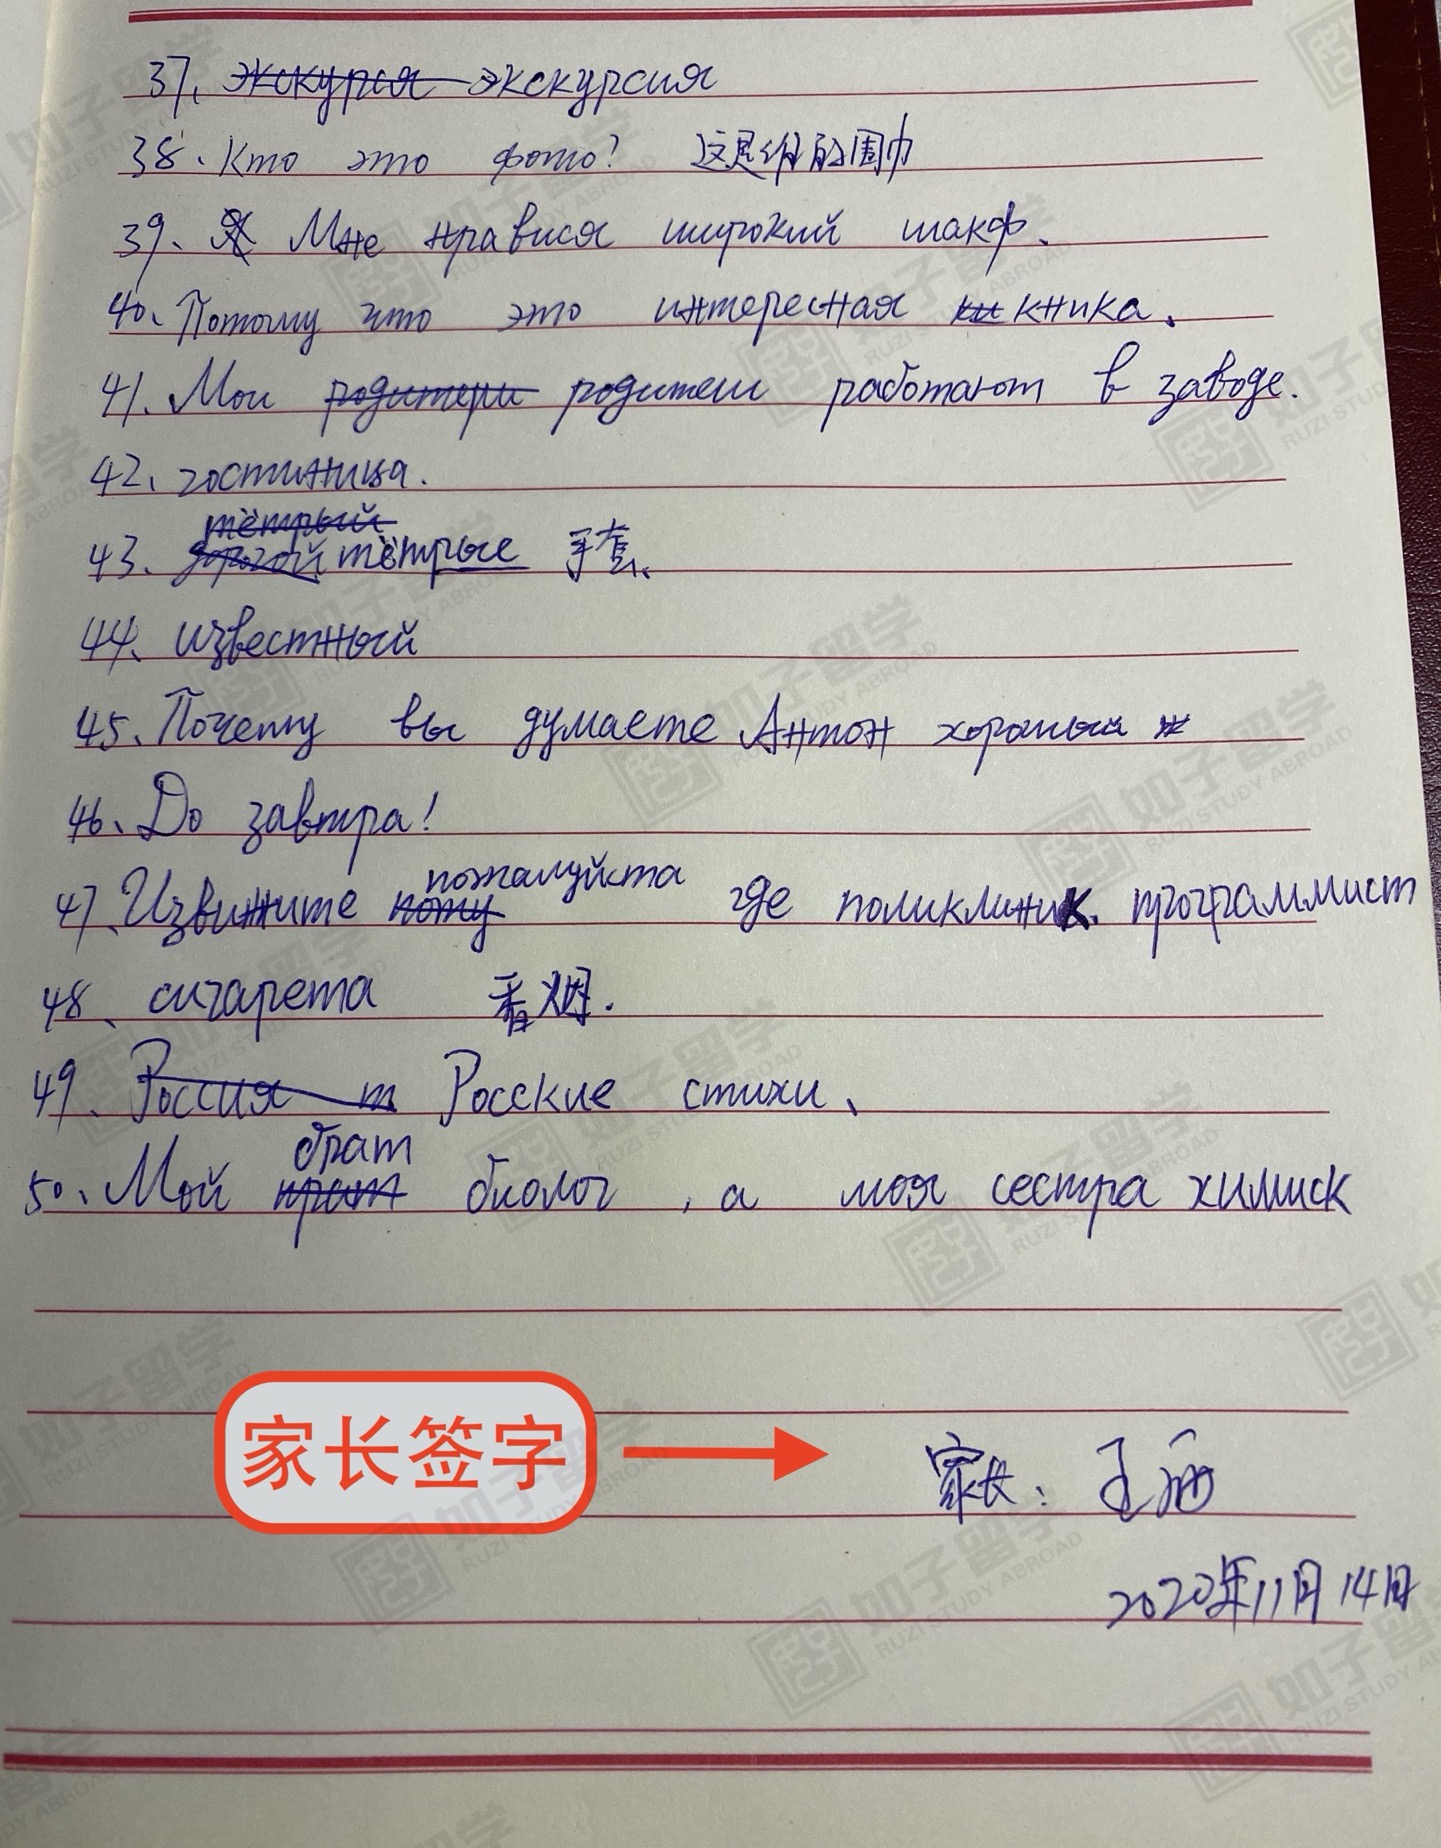 37. экскурия экскурсия
38. Кто это фото? 这是谁的围巾
39. Я Мне нравися широкий шакф.
40. Потому что это интересная кн кника.
41. Мои родитери родители работают в заводе.
42. гостиница.
тётрый
43. дорогой тётрые 手套、
44. известный
45. Почему вы думаете Антон хороший
46. До завтра!
пожалуйста
47. Извините пожу где поликлиник. программист
48. сигарета 香烟.
49. Россия т Росские стихи、
брат
50. Мой прат биолог, а моя сестра химиск
家长签字
家长: 王
2020年11月14日
如子留学
RUZI STUDY ABROAD